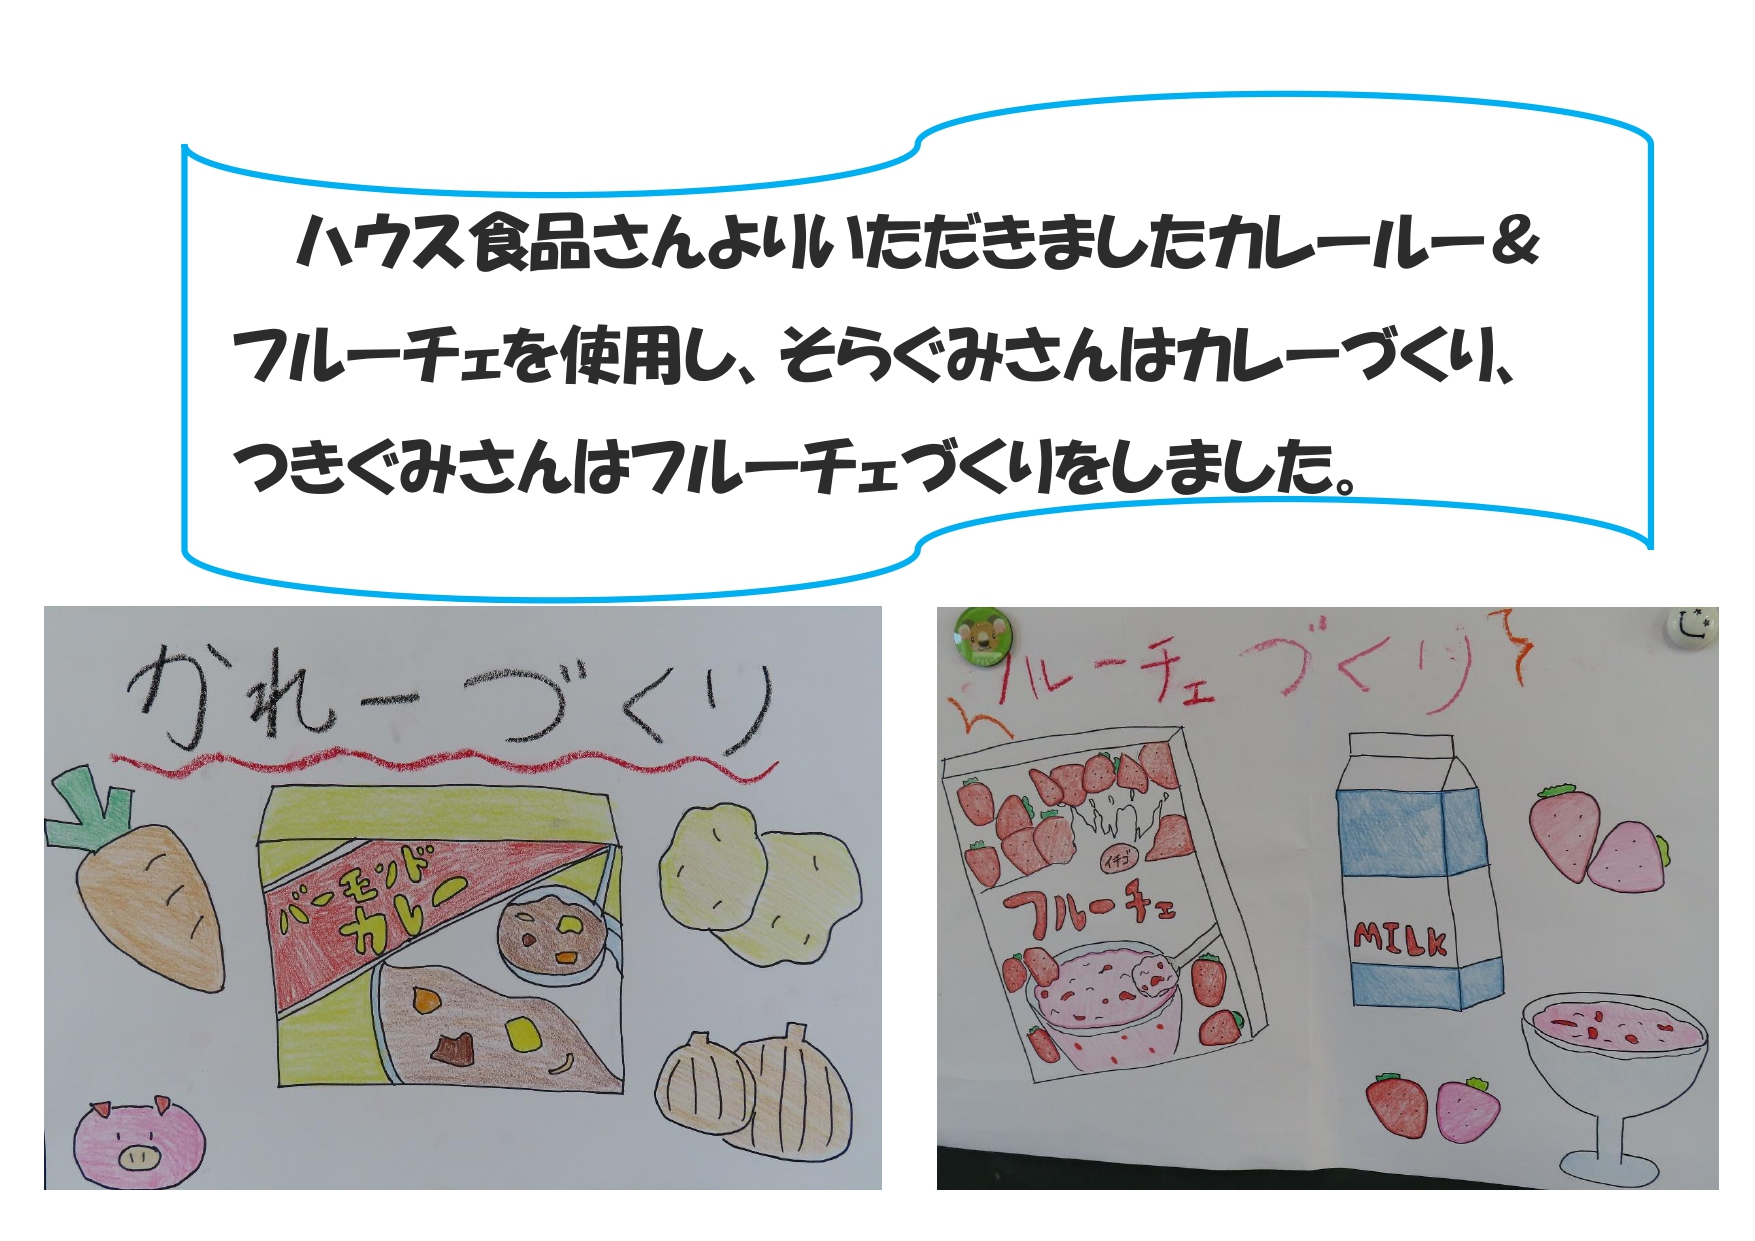 ハウス食品さんよりいただきましたカレールー＆
フルーチェを使用し、そらぐみさんはカレーづくり、
つきぐみさんはフルーチェづくりをしました。
かれーづくり
バーモンド
カレー
フルーチェづくり
イチゴ
フルーチェ
MILK